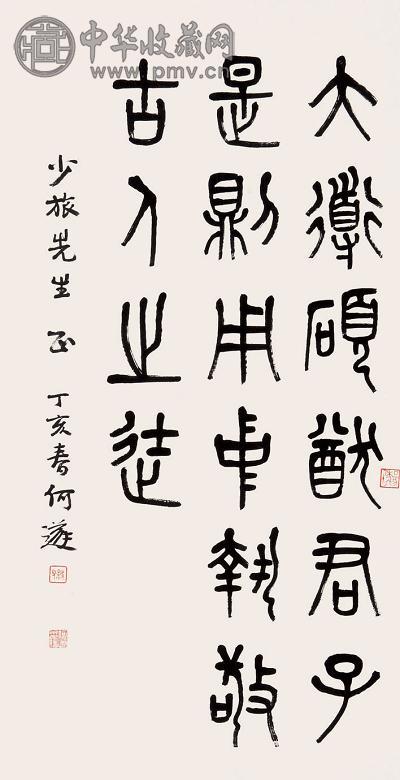 中华收藏网
www.pmv.cn
大道碩猷君子
是則用中執敬
古人之徒
少旅先生 正 丁亥春何遂